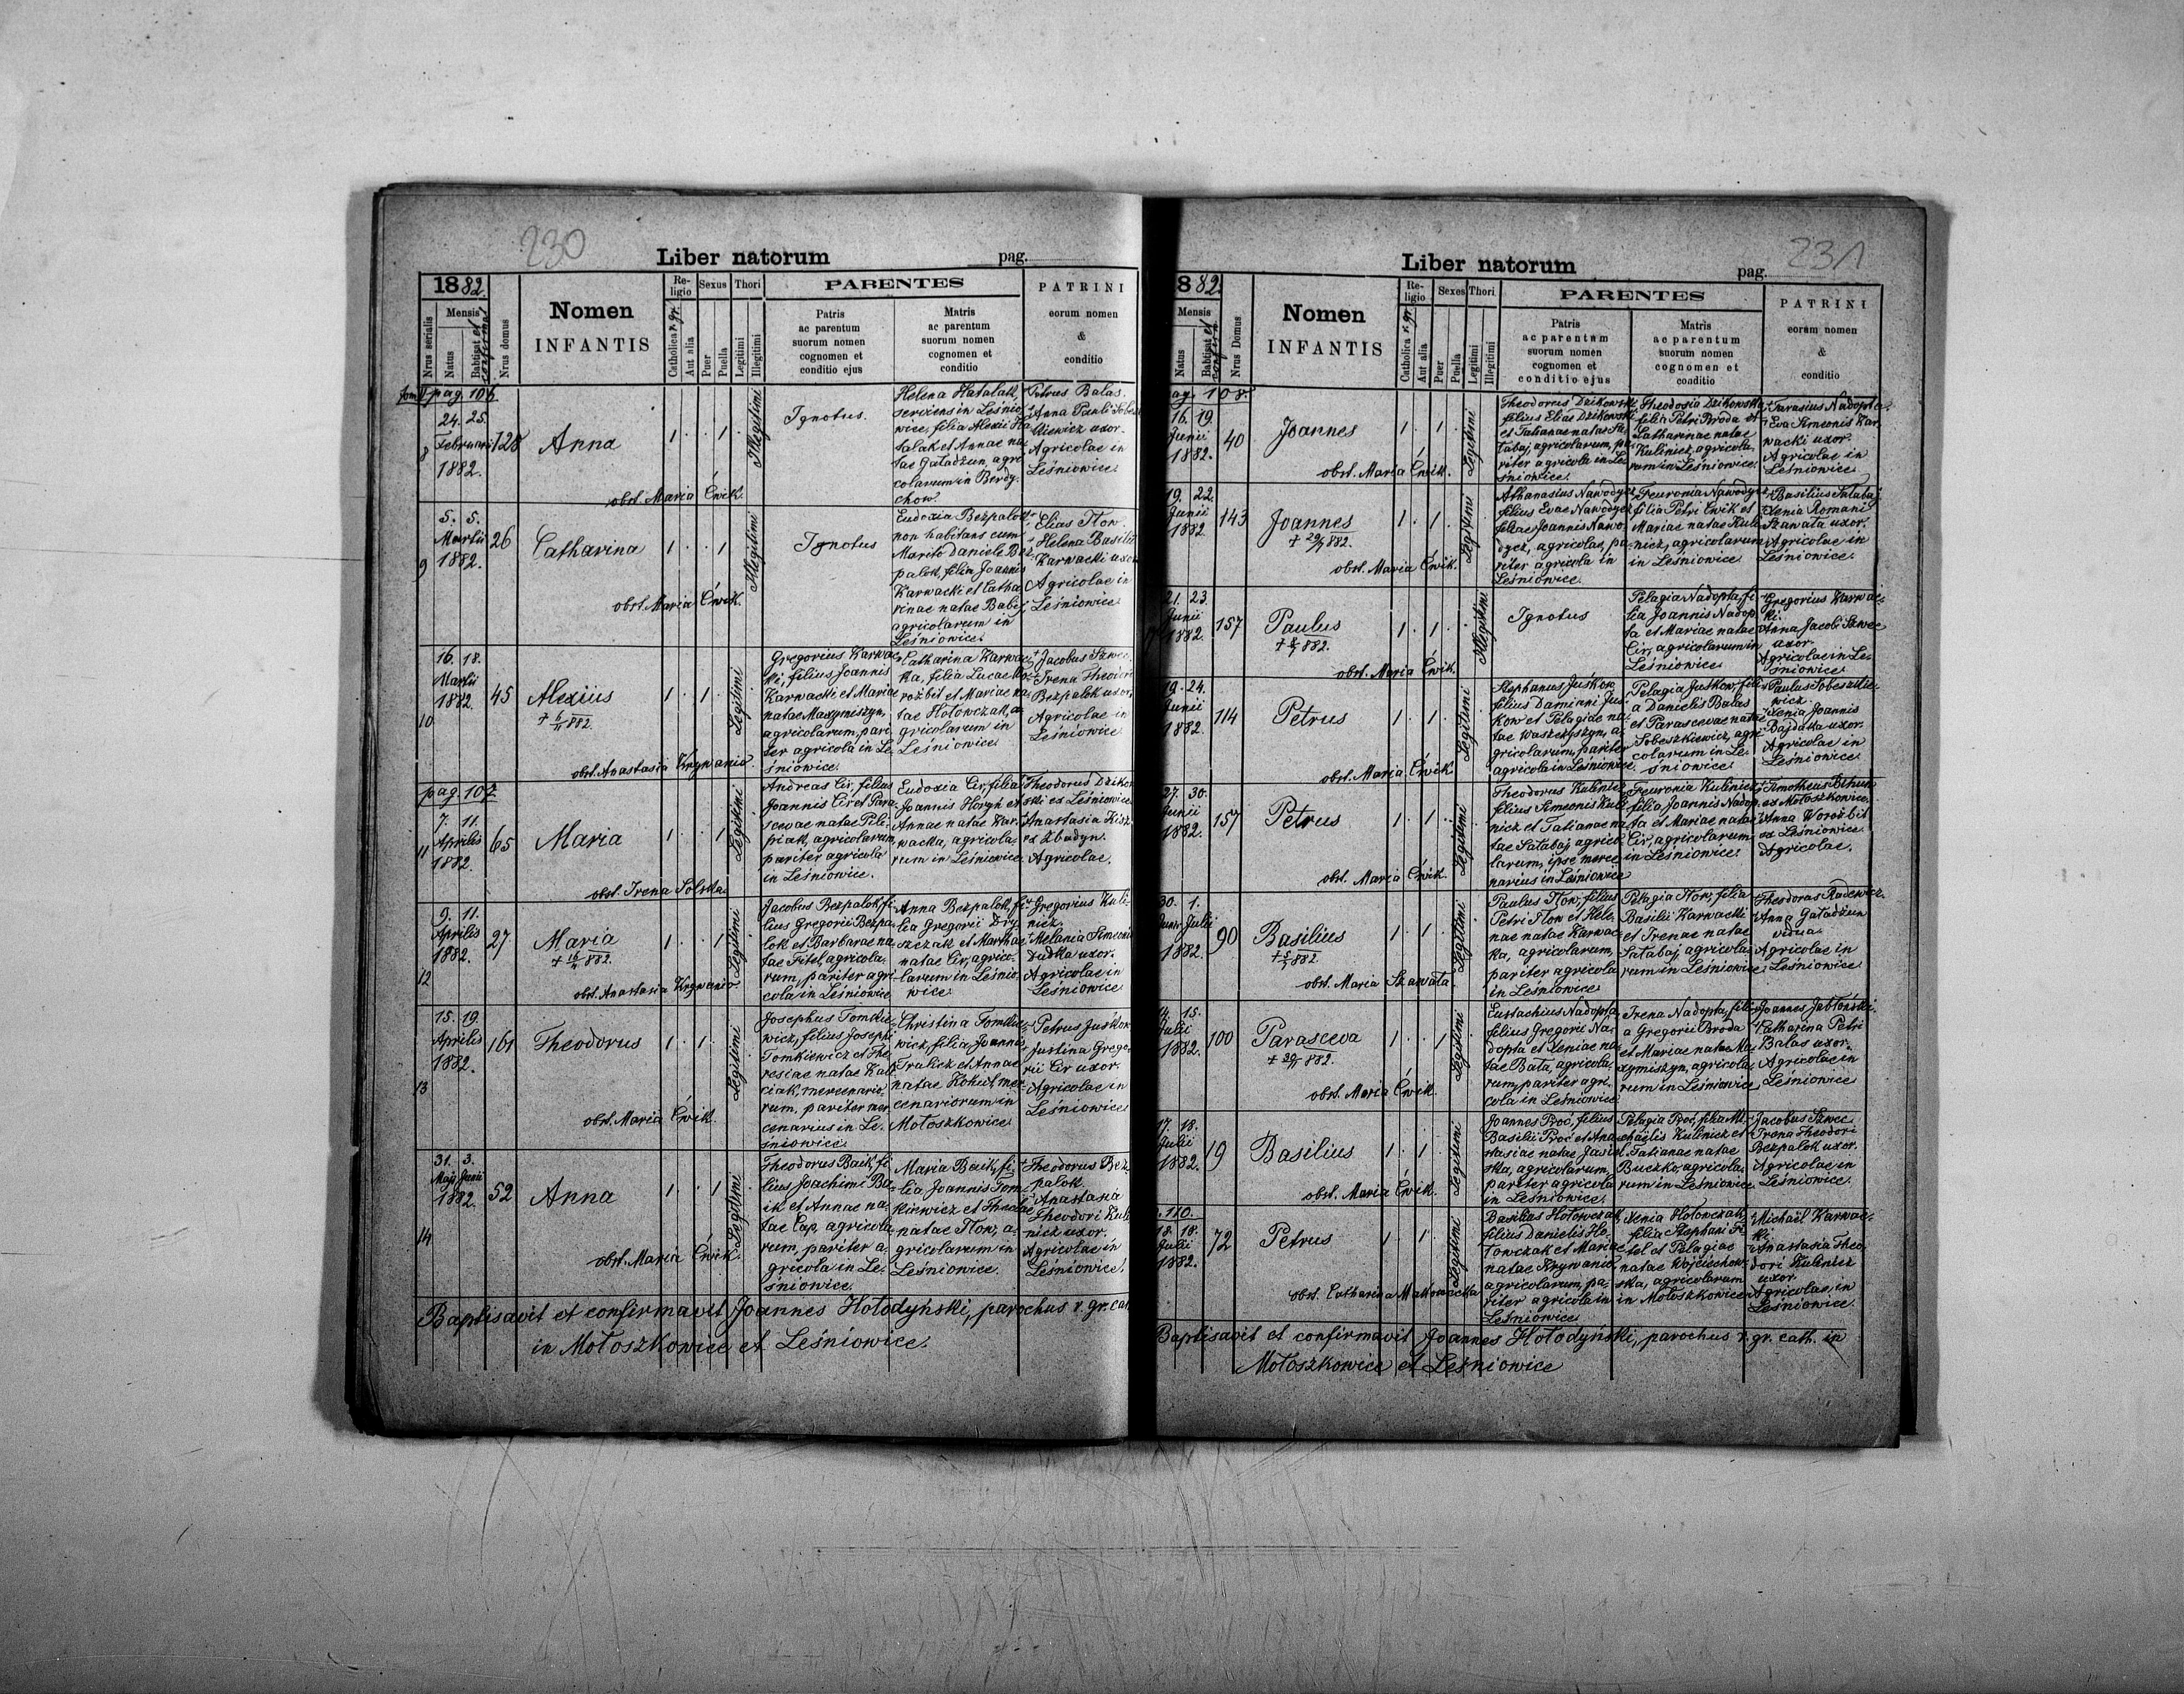 230
Liber natorum pag.
1882.
Nrus serialis
Mensis
Natus
Babtisat et confirmat
Nrus domus
Nomen
INFANTIS
Religio
Catholica r. gr.
Aut alia
Sexus
Puer
Puella
Thori
Legitimi
Illegitimi
PARENTES
Patris
ac parentum
suorum nomen
cognomen et
conditio ejus
Matris
ac parentum
suorum nomen
cognomen et
conditio
PATRINI
eorum nomen
&
conditio
pag. 106.
8
24. 25.
Februarii
1882.
128
Anna
1 . . 1
Illegitimi
obst. Maria Ćwik.
Ignotus.
Helena Hatalak,
serviens in Leśnio-
wice, filia Alexii Ha
talak et Annae na
tae Gaładżun, agri
colarum in Berdy.
chow.
Petrus Balas.
Anna Pauli Sobesz
kiewicz uxor.
Agricolae in
Leśniowice.
9
5. 5.
Martii
1882.
26
Catharina
1 . . 1
Illegitimi
obst. Maria Ćwik.
Ignotus
Eudoxia Bezpalok
non habitans cum
Marito Daniele Bez
palok, filia Joannis
Karwacki et Catha
rinae natae Babij,
agricolarum in
Leśniowice.
Elias Iłow.
Helena Basilii
Karwacki uxor
Agricolae in
Leśniowice.
10
16. 18.
Martii
1882.
45
Alexius
+ 882.
1 . 1 .
Legitimi
obst. Anastasia Krywania.
Gregorius Karwac
ki, filius Joannis
Karwacki et Mariae
natae Maxymiszyn,
agricolarum, pari
ter agricola in Le
śniowice.
Catharina Karwac
ka, filia Lucae Wo
rożbit et Mariae na
tae Hołowczak, a
gricolarum in
Leśniowice.
Jacobus Szwec
Irena Theodori
Bezpalok uxor.
Agricolae in
Leśniowice.
pag. 107
11
7. 11.
Aprilis
1882.
65
Maria
1 . . 1
Legitimi
obst. Irena Solska
Andreas Cir, filius
Joannis Cir et Para
scevae natae Pili
piak, agricolarum,
pariter agricola
in Leśniowice.
Eudoxia Cir, filia
Joannis Horyń et
Annae natae Kar
wacka, agricola
rum in Leśniowice.
Theodorus Dziko
ski ex Leśniowice.
Anastasia Kisz
ex Zbadyn.
Agricolae.
12
9. 11.
Aprilis
1882.
27
Maria
+ 16/4 882.
1 . . 1
Legitimi
obst. Anastasia Krywania
Jacobus Bezpalok, fi
lius Gregorii Bezpa
lok et Barbarae na
tae Fitel, agricola
rum, pariter agri
cola in Leśniowice
Anna Bezpalok, fi
lia Gregorii Dry
szczak et Marthae
natae Cir, agrico
larum in Leśnio
wice
Gregorius Kuli
nicz
Melania Simeonis
Dudka uxor.
Agricolae in
Leśniowice.
13
15. 19.
Aprilis
1882.
161
Theodorus
1 . 1 .
Legitimi
obst. Maria Ćwik.
Josephus Tomkie
wicz, filius Josephi
Tomkiewicz et The
resiae natae Kali
ciak, mercenario
rum, pariter mer
cenarius in Le
śniowice.
Christina Tomkie
wicz, filia Joannis
Tralicz et Annae
natae Kohut, mer
cenariorum in
Mołoszkowice
Petrus Juśkow
Justina Grego
rii Cir uxor.
Agricolae in
Leśniowice.
14
31. 3.
Maji Junii
1882.
52
Anna
1 . . 1
Legitimi
obst. Maria Ćwik.
Theodorus Baik, fi
lius Joachimi Ba
ik et Annae na
tae Cap, agricola
rum, pariter a
gricola in Le
śniowice.
Maria Baik, fi
lia Joannis Tom
kiewicz et Theclae
natae Iłow, a
gricolarum in
Leśniowice.
Theodorus Bez
palok.
Anastasia
Theodori Kuli
nicz uxor.
Agricolae in
Leśniowice.
Baptisavit et confirmavit Joannes Hołodyński, parochus r. gr. cat.
in Mołoszkowice et Leśniowice.
231
Liber natorum pag.
882.
Mensis
Natus
Babtisat et confirm
Nrus Domus
Nomen
INFANTIS
Religio
Catholica r. gr.
Aut alia
Sexes
Puer
Puella
Thori
Legitimi
Illegitimi
PARENTES
Patris
ac parentum
suorum nomen
cognomen et
conditio ejus
Matris
ac parentum
suorum nomen
cognomen et
conditio
PATRINI
eorum nomen
&
conditio
pag. 108.
16. 19.
Junii
1882.
40
Joannes
1 . 1 .
Legitimi
obst. Maria Ćwik.
Theodorus Dzikowski
filius Eliae Dzikowski
et Tatianae natae Sa
łabaj, agricolarum, pa
riter agricola in Le
śniowice.
Theodosia Dzikowska
filia Petri Broda et
Catharinae natae
Kulinicz, agricola
rum in Leśniowice.
Tarasius Nadopta.
Eva Simeonis Kar
wacki uxor.
Agricolae in
Leśniowice.
19. 22.
Junii
1882.
143
Joannes
+ 882.
1 . 1 .
Legitimi
obst. Maria Ćwik.
Athanasius Nawodycz
filius Evae Nawodycz
filiae Joannis Nawo
dycz, agricolae, pa
riter agricola in
Leśniowice.
Feuronia Nawodycz
filia Petri Ćwik et
Mariae natae Kuli
nicz, agricolarum
in Leśniowice.
Basilius Sałabaj
Xenia Romani
Szawała uxor.
Agricolae in
Leśniowice.
21. 23.
Junii
1882.
157
Paulus
+ 882.
1 . 1 .
Illegitimi
obst. Maria Ćwik.
Ignotus
Pelagia Nadopta, fi
lia Joannis Nadop
ta et Mariae natae
Cir, agricolarum in
Leśniowice.
Gregorius Karwac
ki.
Anna Jacobi Szwec
uxor
Agricolae in Le
śniowice.
19. 24.
Junii
1882.
114
Petrus
1 . 1 .
Legitimi
obst. Maria Ćwik
Stephanus Juśkow,
filius Damiani Juś
kow et Pelagiae na
tae Waszczyszyn, a
gricolarum, pariter
agricola in Leśniowice.
Pelagia Juśkow, fili
a Danielis Balas
et Parascevae natae
Sobeszkiewicz, agri
colarum in Le
śniowice.
Paulus Sobeszkie
wicz
Xenia Joannis
Bajdała uxor.
Agricolae in
Leśniowice.
27. 30.
Junii
1882.
157
Petrus
1 . 1 .
Legitimi
obst. Maria Ćwik.
Theodorus Kulinicz
filius Simeonis Kuli
nicz et Tatianae na
tae Sałabaj, agrico
larum, ipse merce
narius in Leśniowice
Feuronia Kulinicz
filia Joannis Nadop
ta et Mariae natae
Cir, agricolarum
in Leśniowice.
Timotheus Bihun
ex Mołoszkowice.
Anna Worożbit
ex Leśniowice.
Agricolae.
30. 1.
Junii Julii
1882.
90
Basilius
+ 882
1 . 1 .
Legitimi
obst. Maria Szawała.
Paulus Iłow, filius
Petri Iłow et Hele
nae natae Karwac
ka, agricolarum,
pariter agricola
in Leśniowice
Pelagia Iłow, filia
Basilii Karwacki
et Irenae natae
Sałabaj, agricola
rum in Leśniowice.
Theodorus Radewicz.
Anna Gaładżun
vidua.
Agricolae in
Leśniowice
14. 15.
Julii
1882.
100
Parasceva
+ 882.
1 . . 1
Legitimi
obst. Maria Ćwik.
Eustachius Nadopta,
filius Gregorii Na
dopta et Xeniae na
tae Bała, agricola
rum, pariter agri
cola in Leśniowice.
Irena Nadopta, fili
a Gregorii Broda
et Mariae natae Ma
xymiszyn, agricola
rum in Leśniowice
Joannes Jabłoński.
Catharina Petri
Balas uxor.
Agricolae in
Leśniowice
17. 18.
Julii
1882.
19
Basilius
1 . 1 .
Legitimi
obst. Maria Ćwik.
Joannes Proć, filius
Basilii Proć et Ana
stasiae natae Jasiń
ska, agricolarum,
pariter agricola
in Leśniowice.
Pelagia Proć, filia Mi
chaëlis Kulinicz et
Tatianae natae
Buczko, agricola
rum in Leśniowice.
Jacobus Szwec
Irena Theodori
Bezpalok uxor.
Agricolae in
Leśniowice.
110.
12. 18.
Julii
1882.
72
Petrus
1 1
Legitimi
obst. Catharina Makowiecka
Basilius Hołowczak,
filius Danielis Ho
łowczak et Mariae
natae Krywania,
agricolarum, pa
riter agricola in
Leśniowice
Xenia Hołowczak,
filia Stephani Fi
tel et Pelagiae
natae Wojciechow
ska, agricolarum
in Mołoszkowice
Michaël Karwac
ki.
Anastasia Theo
dori Kulinicz
uxor.
Agricolae in
Leśniowice.
Baptisavit et confirmavit Joannes Hołodyński, parochus r. gr. cath. in
Mołoszkowice et Leśniowice